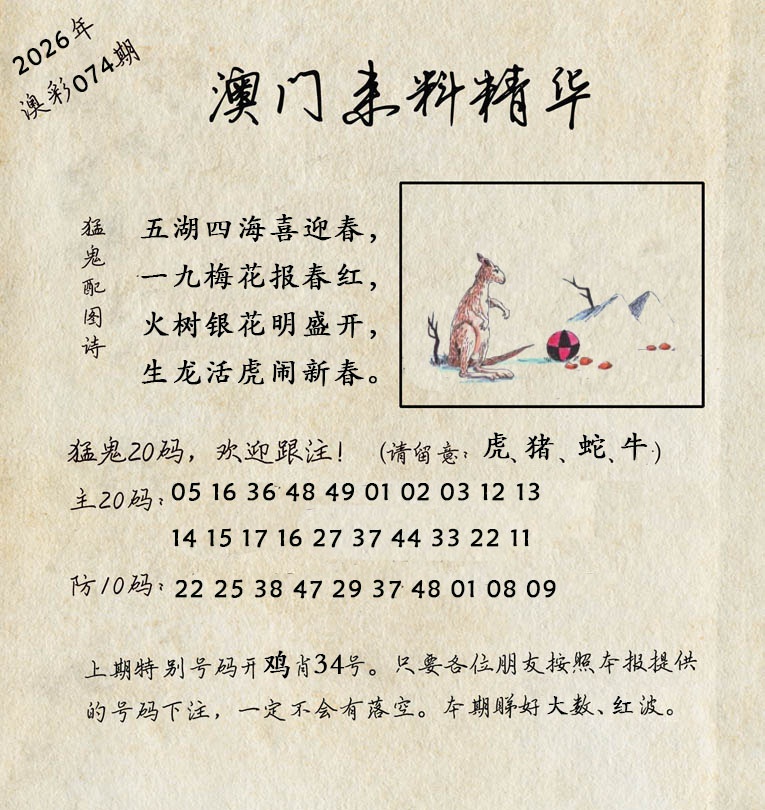 2026年
澳彩074期
澳门来料精华
猛鬼配图诗
五湖四海喜迎春，
一九梅花报春红，
火树银花明盛开，
生龙活虎闹新春。
猛鬼20码，欢迎跟注！（请留意：虎、猪、蛇、牛）
主20码：05 16 36 48 49 01 02 03 12 13
14 15 17 16 27 37 44 33 22 11
防10码：22 25 38 47 29 37 48 01 08 09
上期特别号码开鸡肖34号。只要各位朋友按照本报提供
的号码下注，一定不会有落空。本期睇好大数、红波。